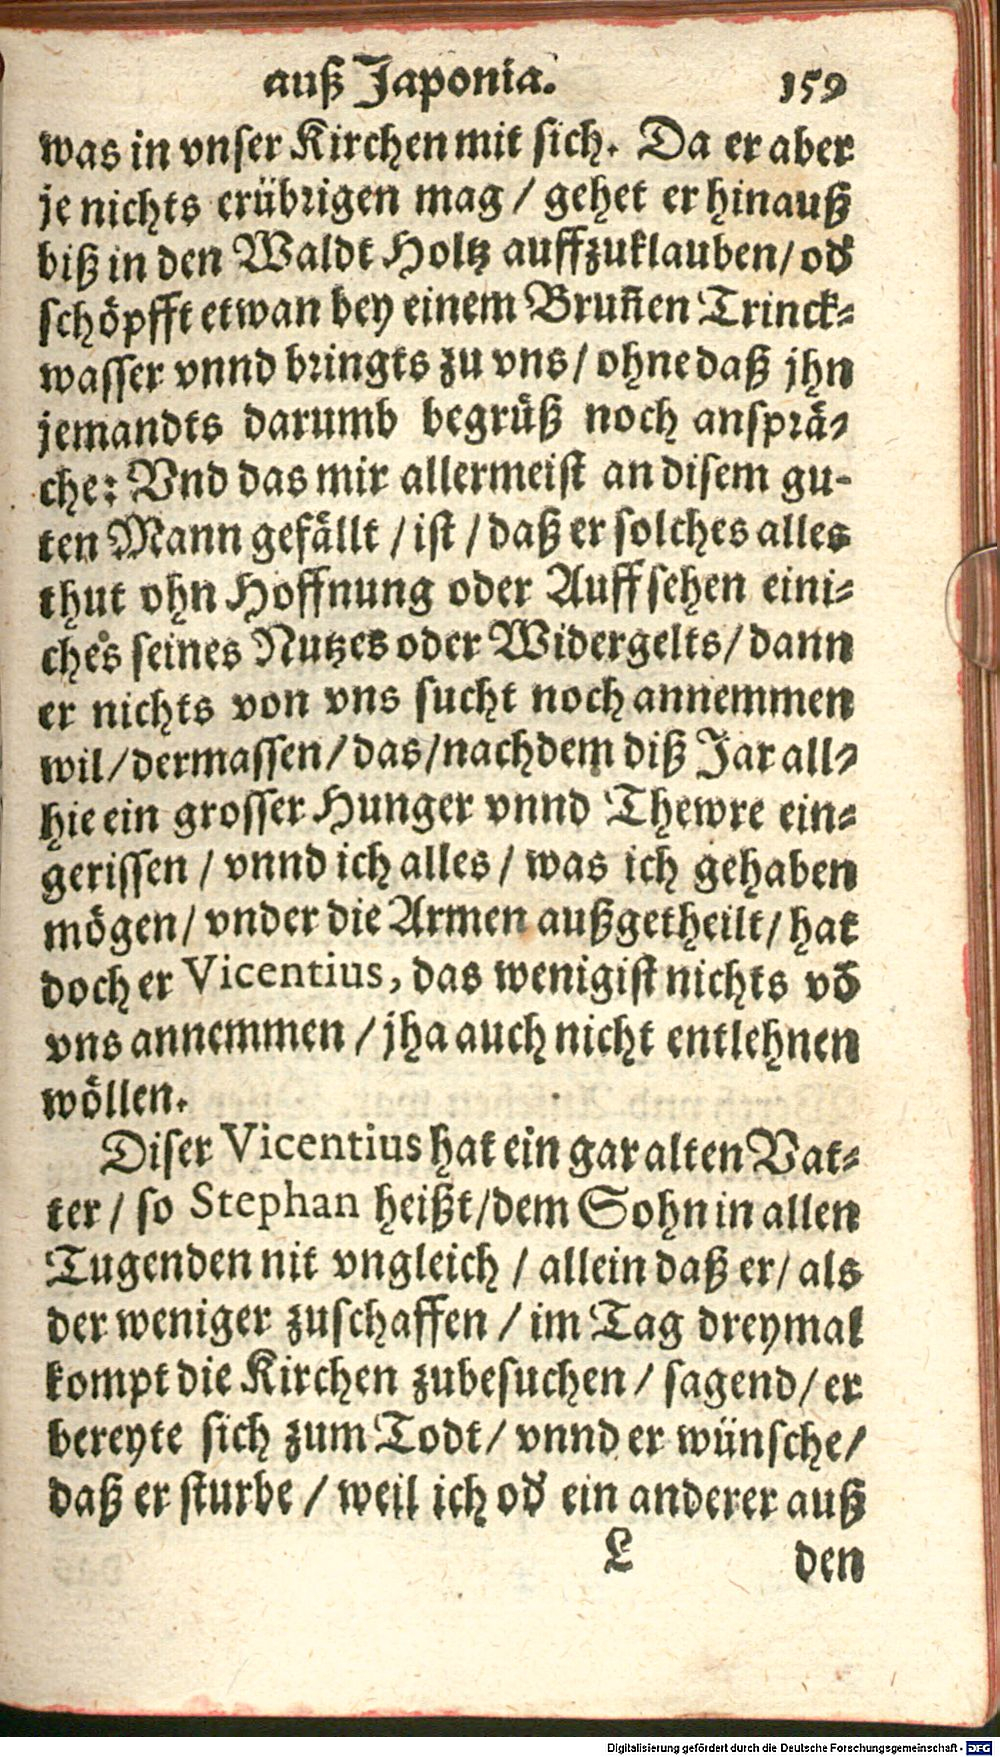 auß Japonia. 159
was in vnser Kirchen mit sich. Da er aber
je nichts erübrigen mag / gehet er hinauß
biß in den Waldt Holtz auffzuklauben / od̛
schöpfft etwan bey einem Brun̄en Trinck-
wasser vnnd bringts zu vns / ohne daß jhn
jemandts darumb begrüß noch ansprä-
che: Vnd das mir allermeist an disem gu-
ten Mann gefällt / ist / daß er solches alles
thut ohn Hoffnung oder Auffsehen eini-
ches seines Nutzes oder Widergelts / dann
er nichts von vns sucht noch annemmen
wil / dermassen / das / nachdem diß Jar all-
hie ein grosser Hunger vnnd Thewre ein-
gerissen / vnnd ich alles / was ich gehaben
mögen / vnder die Armen außgetheilt / hat
doch er Vicentius, das wenigist nichts võ
vns annemmen / jha auch nicht entlehnen
wöllen.
Diser Vicentius hat ein gar alten Vat-
ter / so Stephan heißt / dem Sohn in allen
Tugenden nit vngleich / allein daß er / als
der weniger zuschaffen / im Tag dreymal
kompt die Kirchen zubesuchen / sagend / er
bereyte sich zum Todt / vnnd er wünsche /
daß er sturbe / weil ich od̛ ein anderer auß
L den
Digitalisierung gefördert durch die Deutsche Forschungsgemeinschaft - DFG